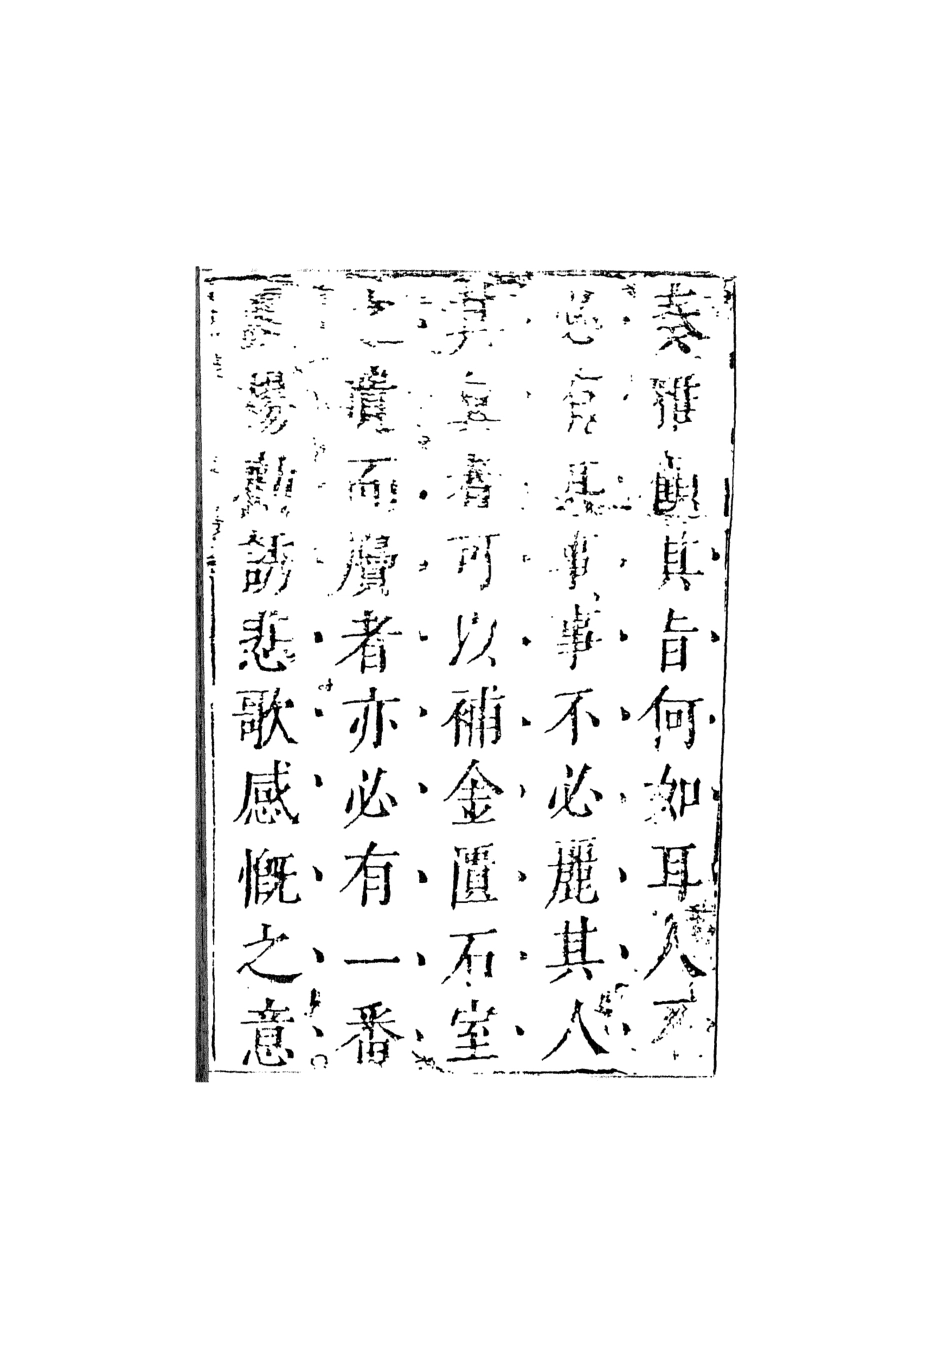 奏雅顧其旨何如耳人不
必有其事事不必麗其人
其真者可以補金匱石室
之遺而贗者亦必有一番
激揚勸誘悲歌感慨之意